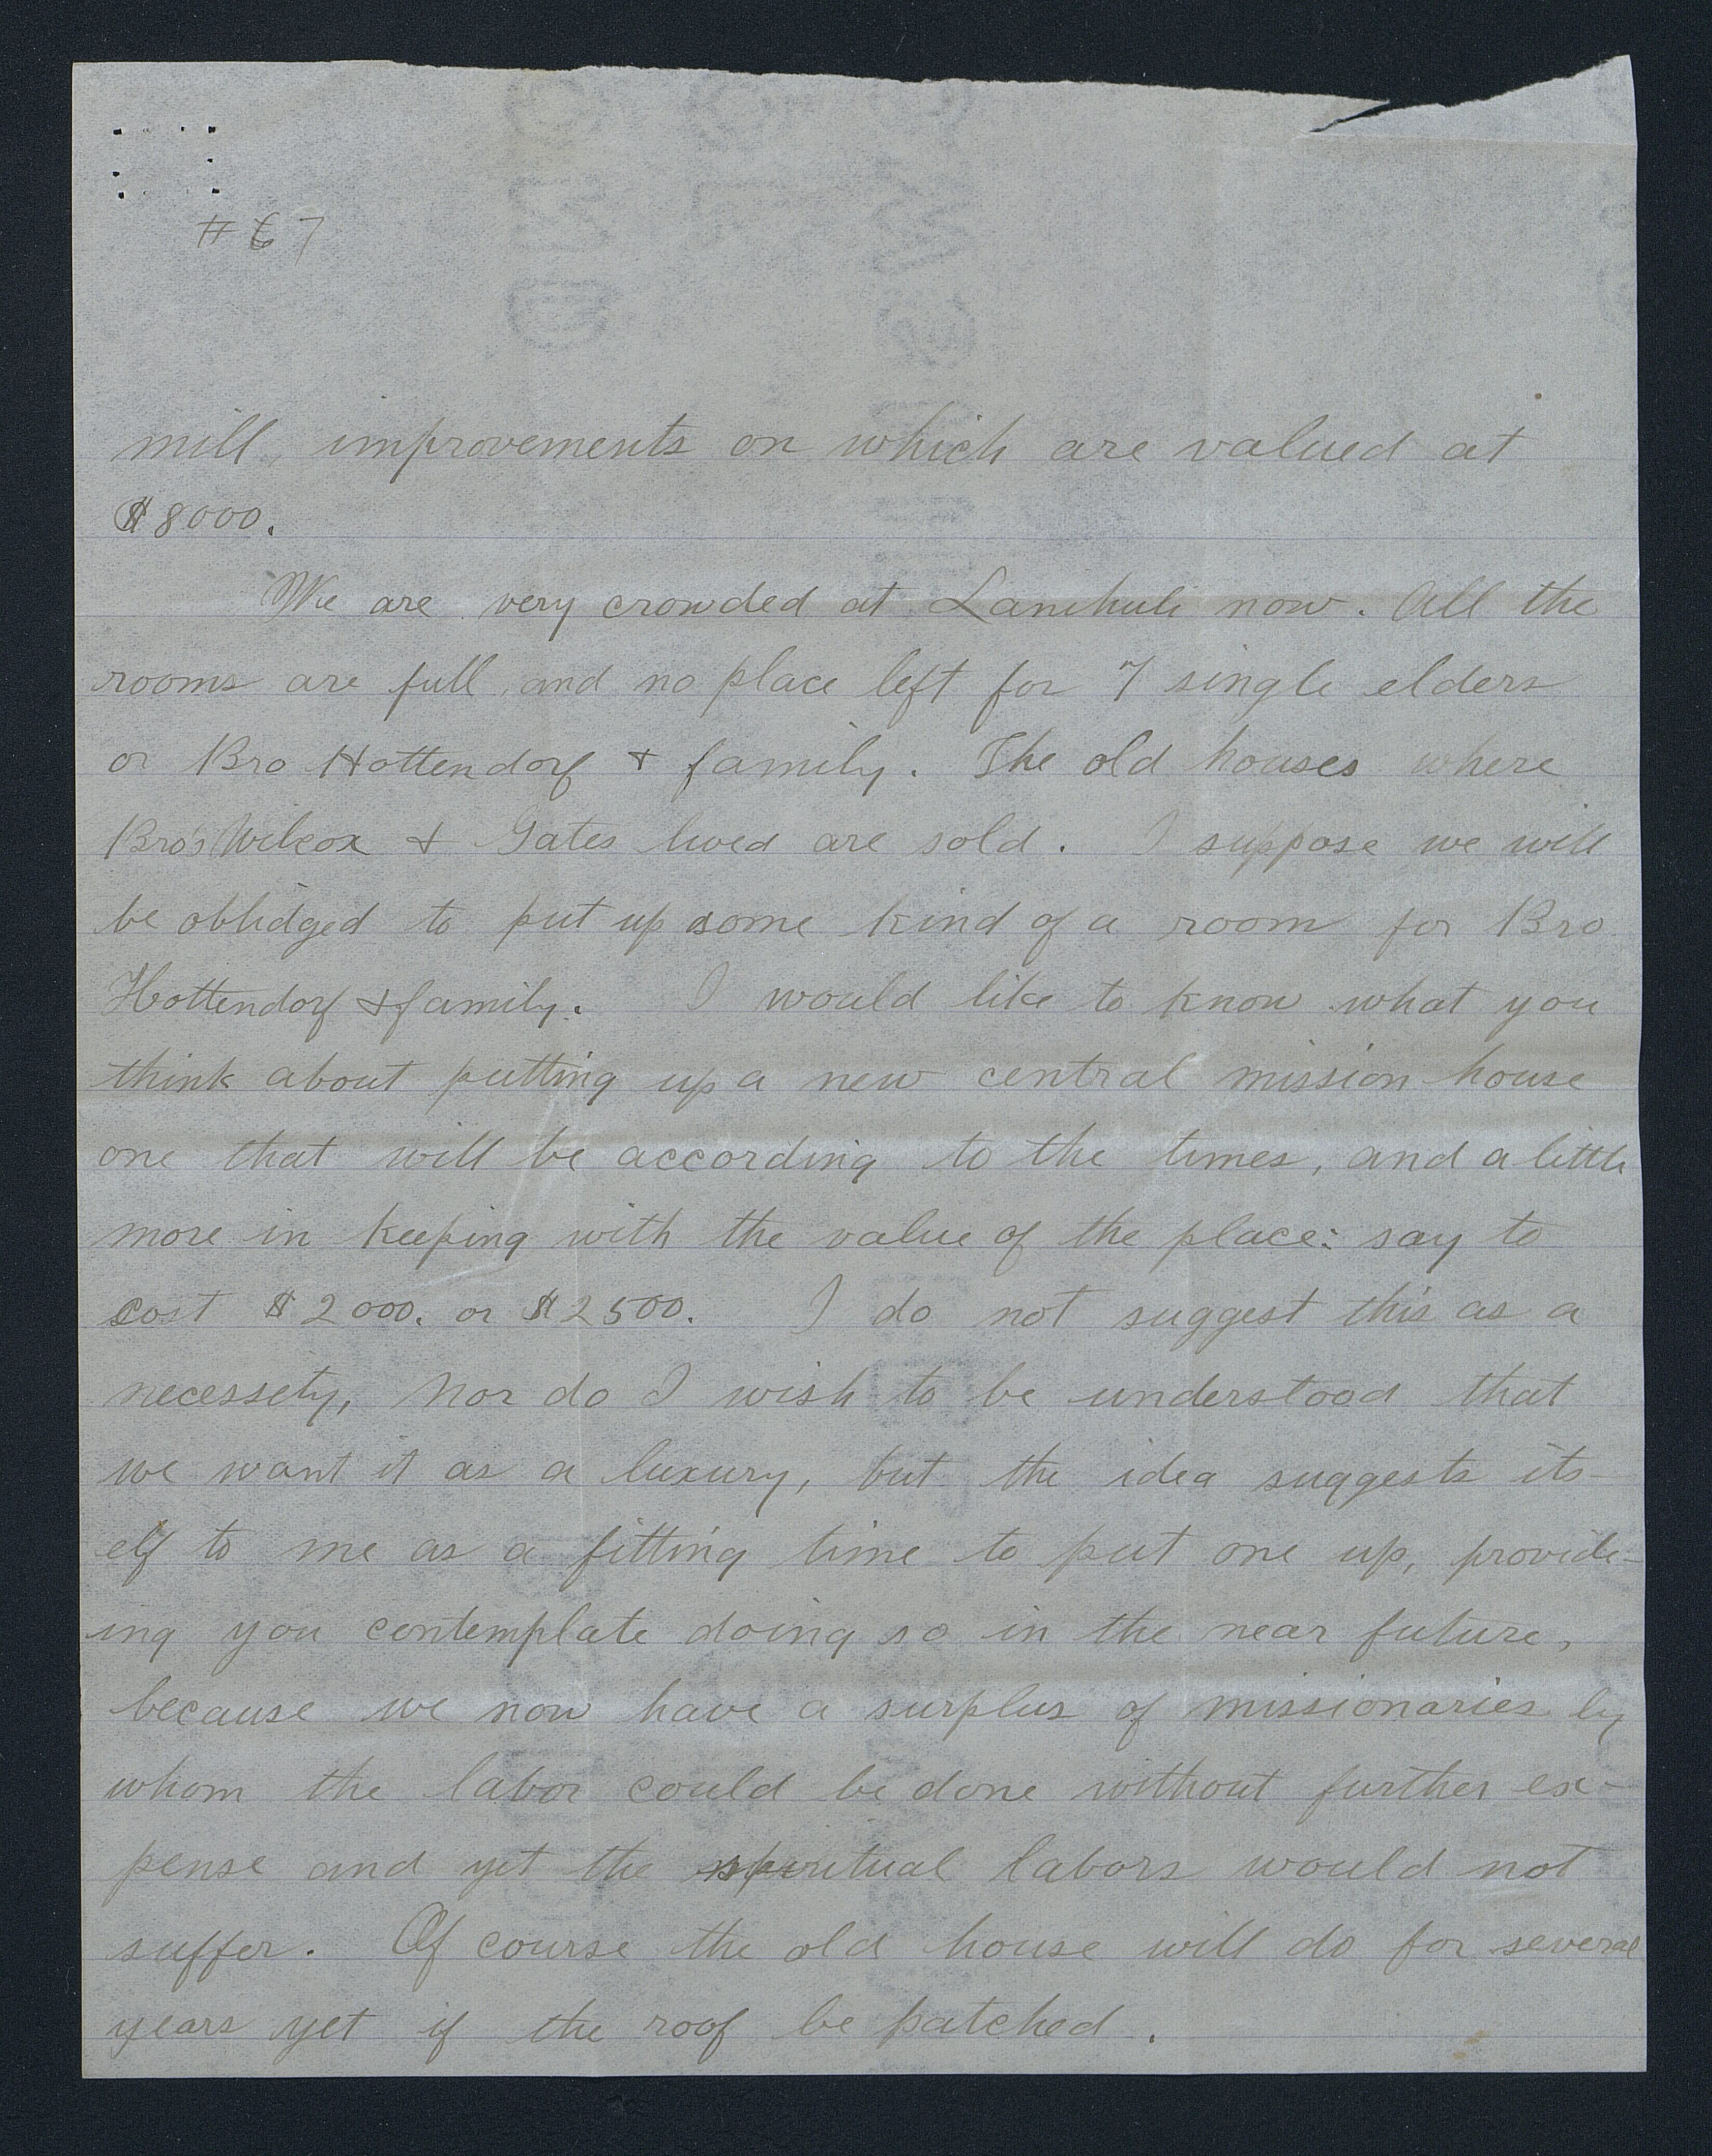 #67
mill, improvements on which are valued at
$8000.
We are very crowded at Lanihuli now. All the
rooms are full, and no place left for 7 single elders
or Bro Hottendorf & family. The old houses where
Bro's Wilcox & Gates lived are sold. I suppose we will
be oblidged to put up some kind of a room for Bro
Hottendorf & family. I would like to know what you
think about putting up a new central mission house
one that will be according to the times, and a little
more in keeping with the value of the place: say to
cost $2000. or $2500. I do not suggest this as a
necessety, nor do I wish to be understood that
we want it as a luxury, but the idea suggests its-
elf to me as a fitting time to put one up, provide-
ing you contemplate doing so in the near future,
because we now have a surplus of missionaries by
whom the labor could be done without further ex-
pense and yet the spiritual labors would not
suffer. Of course the old house will do for several
years yet if the roof be patched.